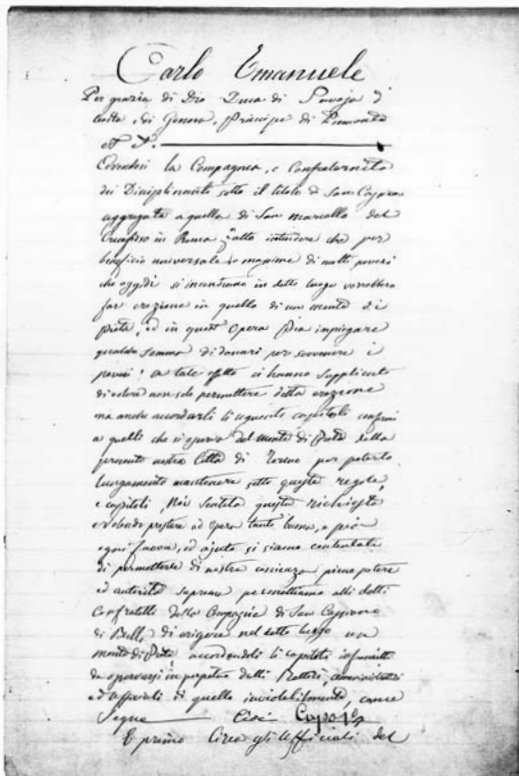 Carlo Emanuele
Per grazia di Dio Duca di Savoja d'
Aosta, di Genova, Principe di Piemonte
et P.
la Compagnia, e Confraternita
dei Disciplinanti sotto il titolo di San
aggregata a quella di San Marcello del
in Roma fatto intendere che per
beneficio universale e maxime di molti poveri
che oggidì si in detto luogo vorrebbero
far erezione in quello di un monte di
pietà, ed in quest'Opera pia impiegare
qualche somma di danari per sovvenire i
poveri; a tale effetto ci hanno supplicato
di volere non solo permettere detta erezione
ma anche accordarli li seguenti capitoli conformi
a quelli che si del monte di Pietà della
presente nostra Città di Torino per poterlo
lungamente mantenere sotto queste regole
e capitoli, Noi sentita questa richiesta
volendo prestare ad opera tanto buona, e pia
ogni favore, ed ajuto si siamo contentati
di permettere di nostra piena potere
ed autorità suprema permettiamo alli detti
Confratelli della Compagnia di San
di di erigere nel detto luogo un
monte di Pietà accordandoli li capitoli
da in perpetuo detti Rettori, amministratori
ed di quello inviolabilmente, come
Segue Cioè
E primo Circa gli Ufficiali del